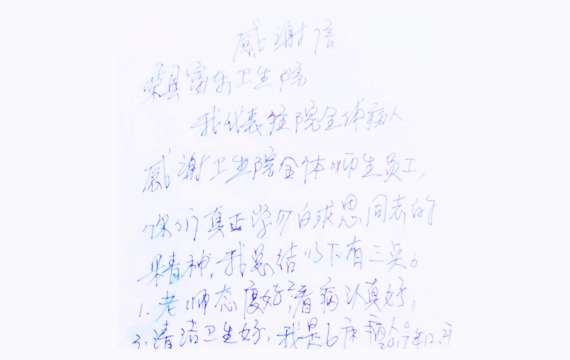 感谢信
荣县富东卫生院
我代表住院全体病人
感谢卫生院全体师生员工,
你们真正学习白求恩同志的
精神,我总结以下有三点。
1.老师态度好,看病认真好,
清洁卫生好,我是6床病人2019年12月